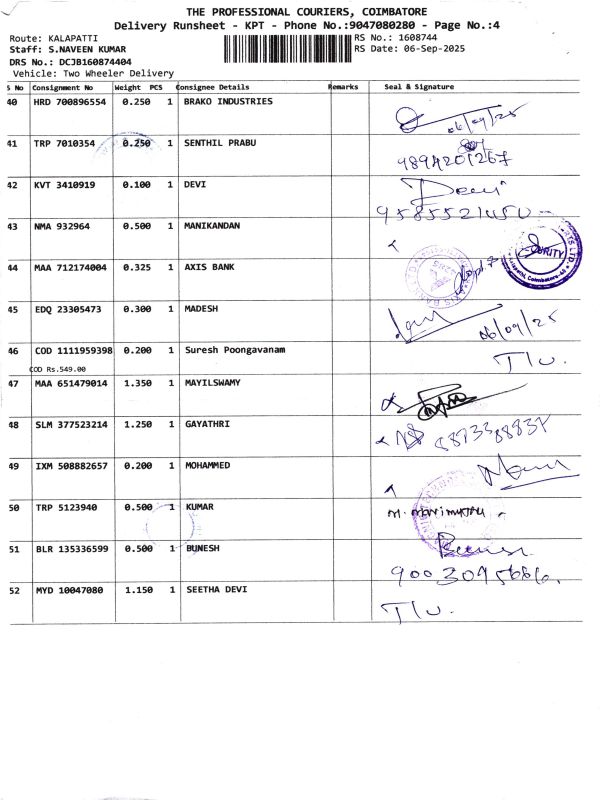 THE PROFESSIONAL COURIERS, COIMBATORE
Delivery Runsheet - KPT - Phone No.:9047080280 - Page No.:4
Route: KALAPATTI
RS No.: 1608744
Staff: S.NAVEEN KUMAR
RS Date: 06-Sep-2025
DRS No.: DCJB160874404
Vehicle: Two Wheeler Delivery
S No Consignment No Weight PCS Consignee Details Remarks Seal & Signature
40 HRD 700896554 0.250 1 BRAKO INDUSTRIES
06/09/25
41 TRP 7010354 0.250 1 SENTHIL PRABU
9894201267
42 KVT 3410919 0.100 1 DEVI
Devi
43 NMA 932964 0.500 1 MANIKANDAN
44 MAA 712174004 0.325 1 AXIS BANK
45 EDQ 23305473 0.300 1 MADESH
06/09/25
46 COD 1111959398 0.200 1 Suresh Poongavanam
COD Rs.549.00
47 MAA 651479014 1.350 1 MAYILSWAMY
48 SLM 377523214 1.250 1 GAYATHRI
49 IXM 508882657 0.200 1 MOHAMMED
50 TRP 5123940 0.500 1 KUMAR
M. MARIMUTHU
51 BLR 135336599 0.500 1 BUNESH
52 MYD 10047080 1.150 1 SEETHA DEVI